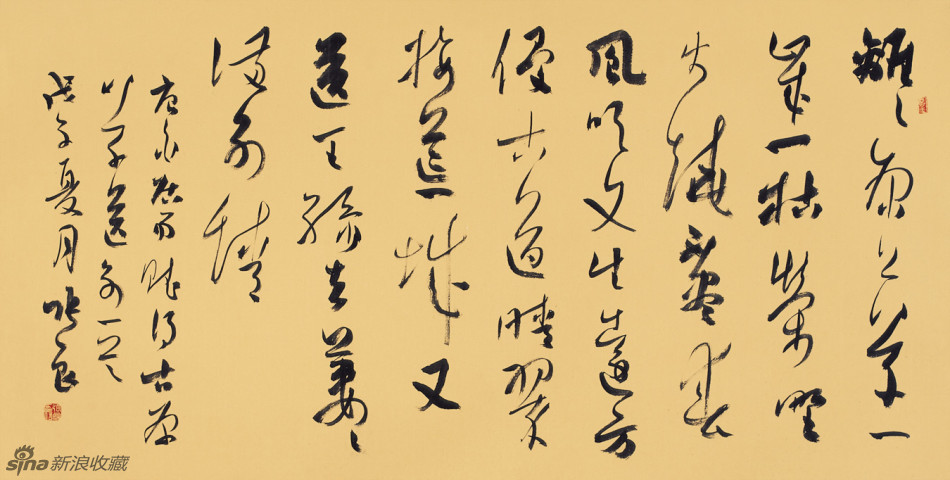 離〻原上草一
歲一枯榮野
火燒不盡春
風吹又生遠芳
侵古道晴翠
接荒城又
送王孫去萋〻
滿別情
唐白居易賦得古原
草送別一首
戊子夏月
sina新浪收藏